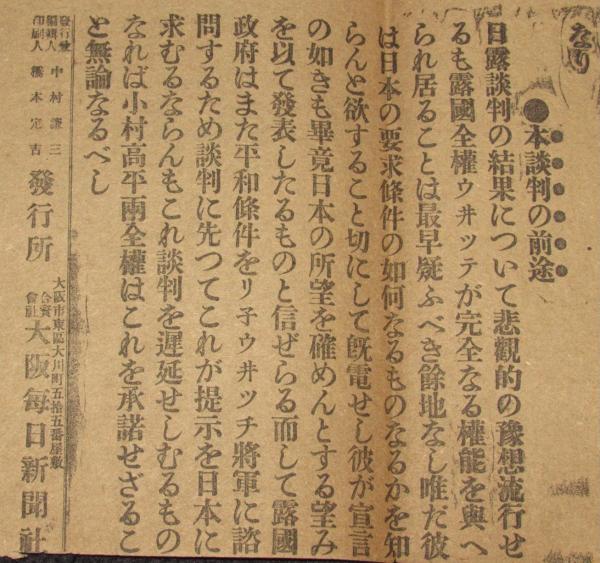 なり
●本談判の前途
日露談判の結果について悲觀的の豫想流行せ
るも露國全權ウヰッテが完全なる權能を與へ
られ居ることは最早疑ふべき餘地なし唯だ彼
は日本の要求條件の如何なるものなるかを知
らんと欲すること切にして既電せし彼が宣言
の如きも畢竟日本の所望を確めんとする望み
を以て發表したるものと信ぜらる而して露國
政府はまた平和條件をリ子ウヰッチ將軍に諮
問するため談判に先つてこれが提示を日本に
求むるならんもこれ談判を遲延せしむるもの
なれば小村高平兩全權はこれを承諾せざるこ
と無論なるべし
發行兼編輯人 中村謙三
印刷人 橋本定吉
發行所
大阪市東區大川町五拾五番屋敷
合資會社 大阪每日新聞社